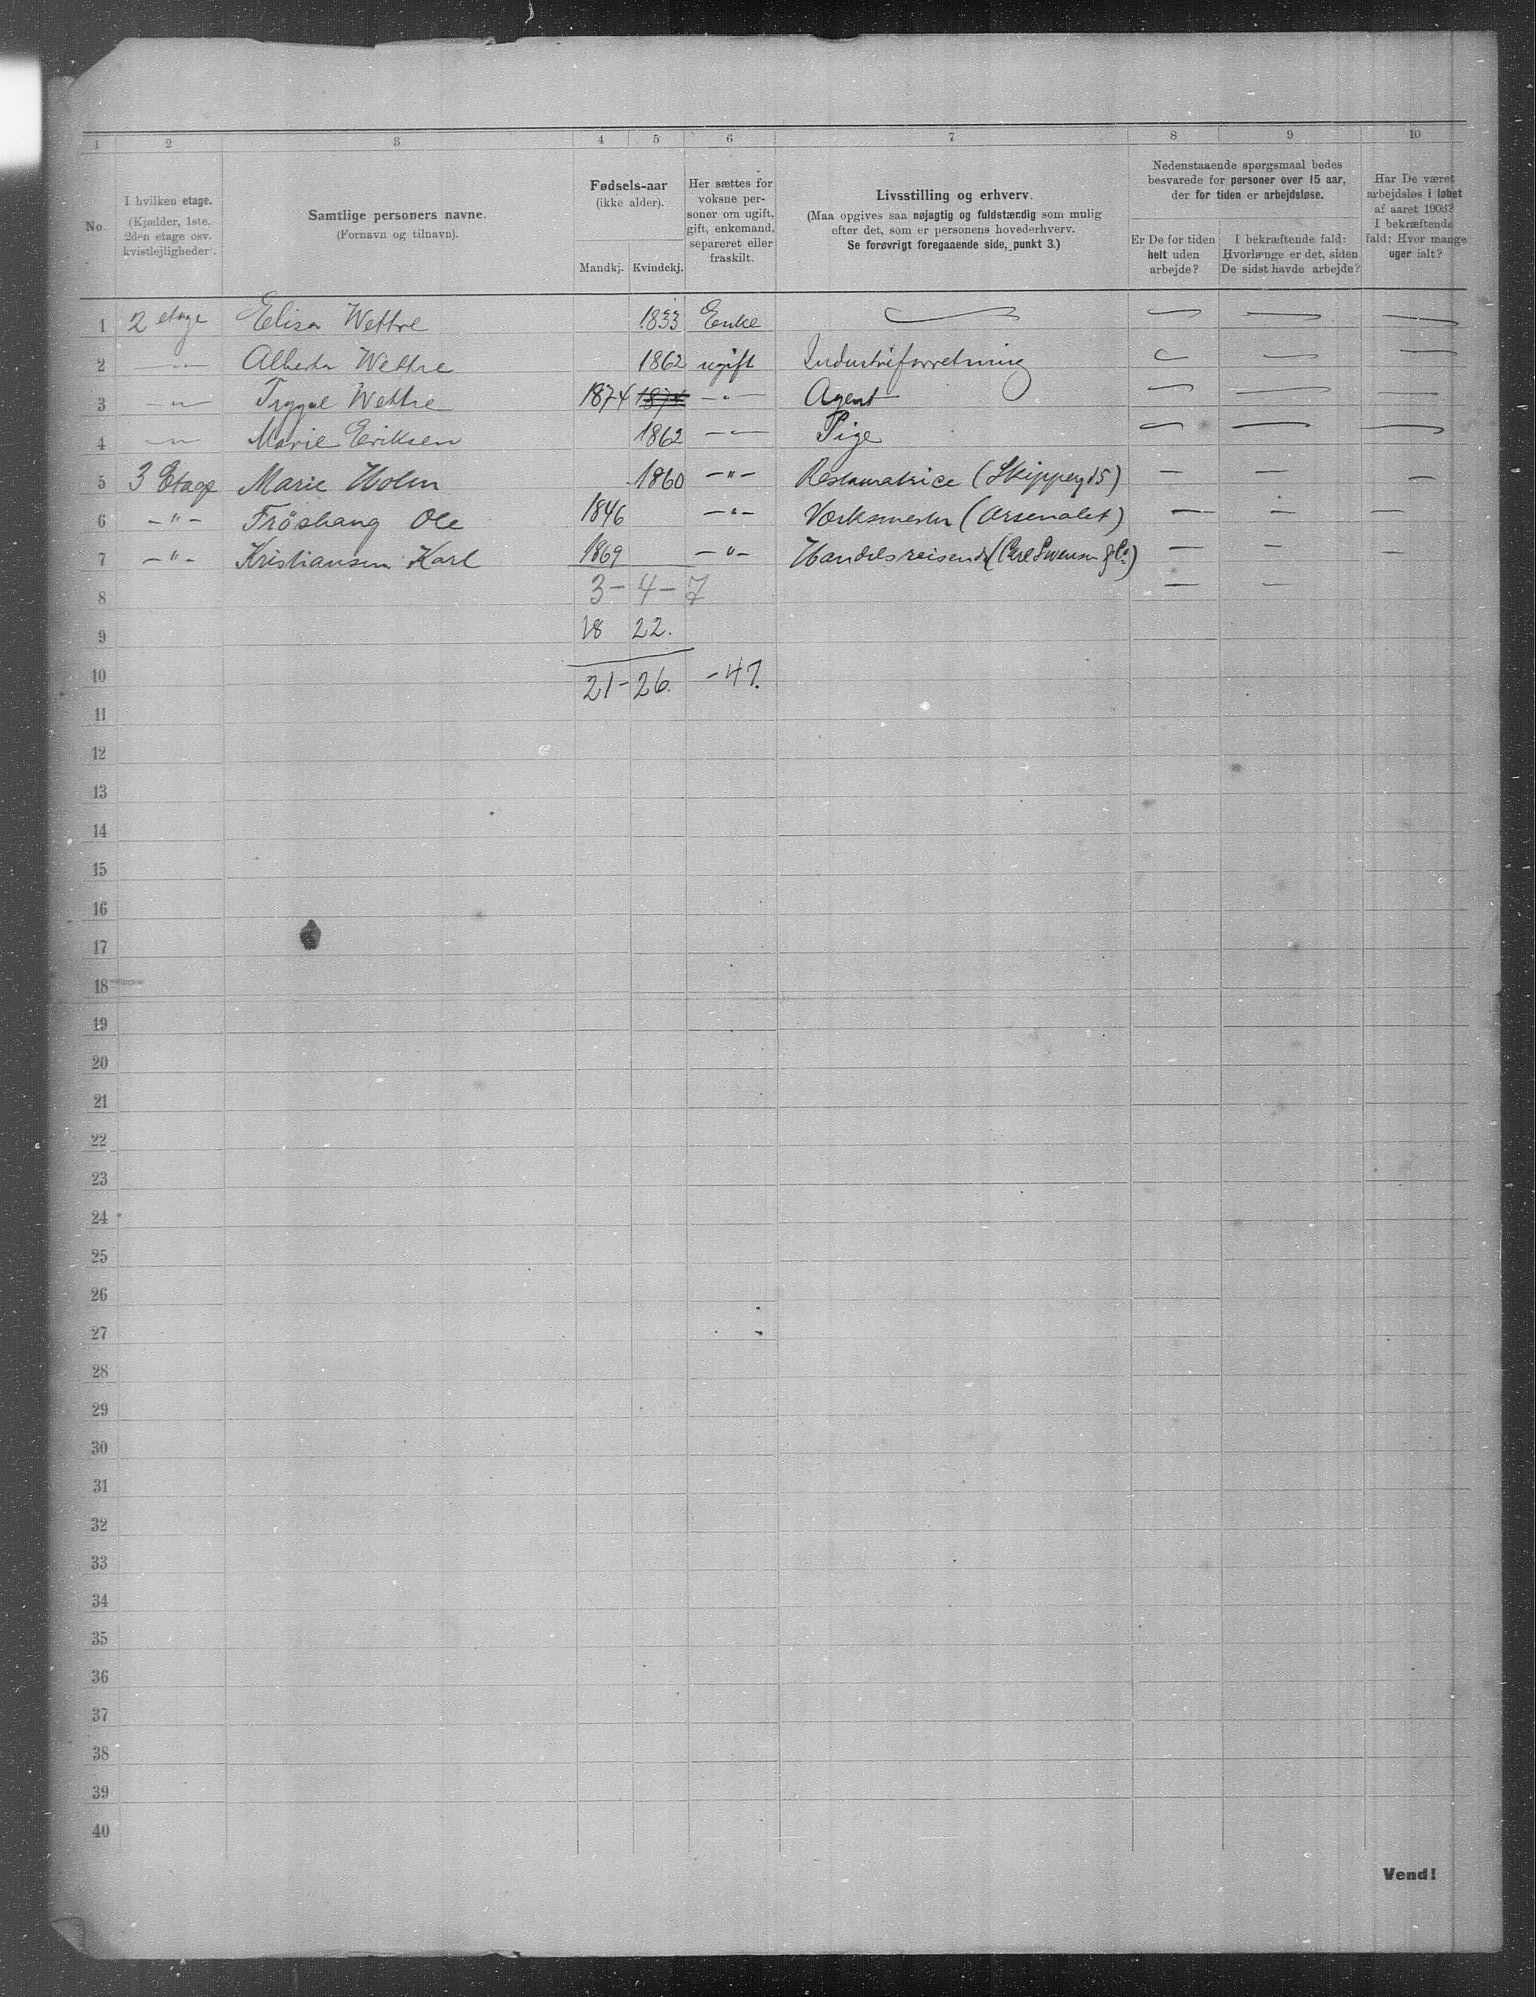 1 2 3 4 5 6 7 8 9 10
No.
I hvilken etage.
(Kjælder, 1ste.
2den etage osv.
kvistlejligheder).
Samtlige personers navne.
(Fornavn og tilnavn).
Fødsels-aar
(ikke alder).
Mandkj. Kvindekj.
Her sættes for
voksne per-
soner om ugift,
gift, enkemand,
separeret eller
fraskilt.
Livsstilling og erhverv.
(Maa opgives saa nøjagtig og fuldstærdig som mulig
efter det, som er personens hovederhverv.
Se forøvrigt foregaaende side, punkt 3.)
Nedenstaaende spørgsmaal bedes
besvarede for personer over 15 aar,
der for tiden er arbejdsløse.
Er De for tiden
helt uden
arbejde?
I bekræftende fald:
Hvorlænge er det, siden
De sidst havde arbejde?
Har De været
arbejdsløs i løbet
af aaret 1903?
I bekræftende
fald: Hvor mange
uger ialt?
1 2 etage Elisa Wettre 1833 Enke — — — —
2 —"— Alberta Wettre 1862 ugift Industriforretning — — —
3 —"— Trygve Wettre 1874 1874 —"— Agent — — —
4 —"— Marie Eriksen 1862 —"— Pige — — —
5 3 Etage Marie Holm 1860 —"— Restauratrice (Skipperg 15) — — —
6 —"— Frøshaug Ole 1846 —"— Værksmester (Arsenalet) — — —
7 —"— Kristiansen Karl 1869 —"— Handelsreisende (Carl Svensen & Co) — — —
8 3 – 4 – 7 — —
9 18 22.
10 21 – 26. – 47.
11
12
13
14
15
16
17
18
19
20
21
22
23
24
25
26
27
28
29
30
31
32
33
34
35
36
37
38
39
40
Vend!